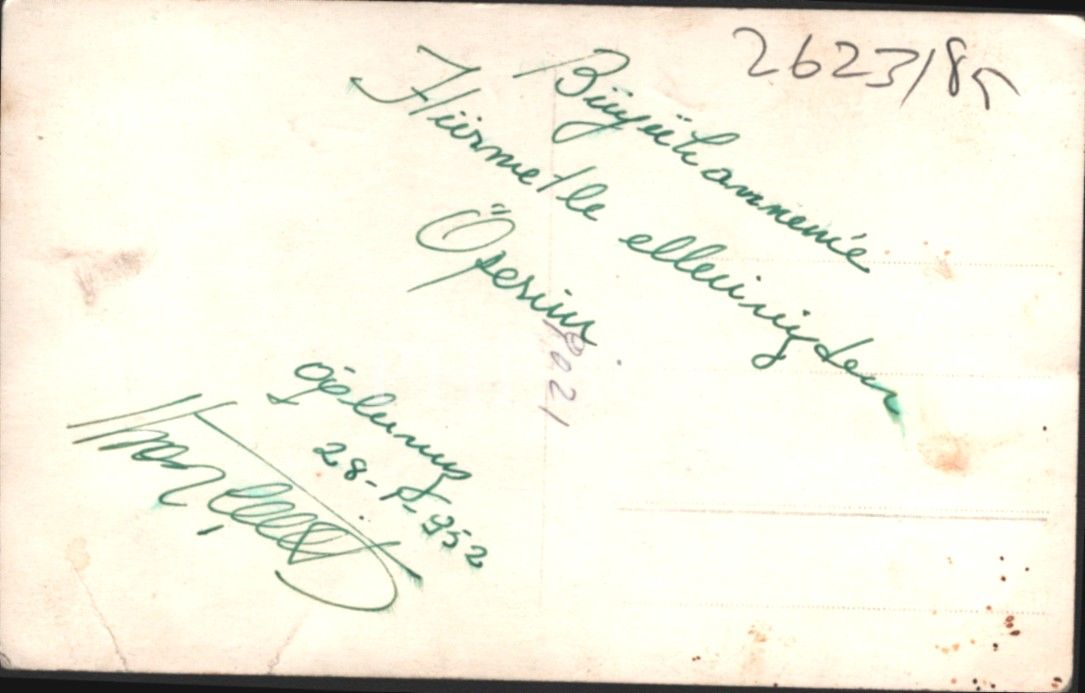 2623/85
Büyük anneme
Hürmetle ellerinizden
Öperim
oğlunuz
28-5-952